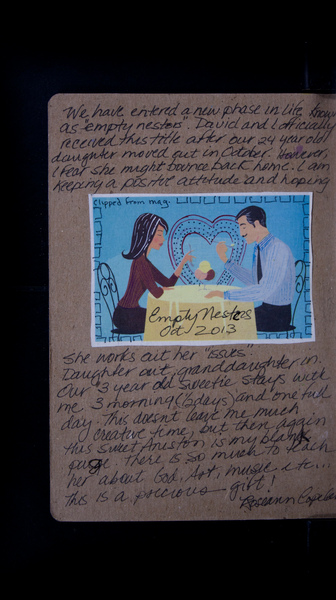 We have entered a new phase in life known
as "empty nesters". David and I officially
received this title after our 24 year old
daughter moved out in October. However,
I fear she might bounce back home. I am
keeping a positive attitude and hoping
Clipped from mag.
Empty Nesters
Oct 2013
she works out her "issues".
Daughter out, granddaughter in.
Our 3 year old sweetie stays with
me 3 morning (½days) and one full
day. This doesn't leave me much
creative time, but then again
this sweet Aniston is my blank
page. There is so much to teach
her about God, Art, music etc...
This is a precious gift!
Roseann